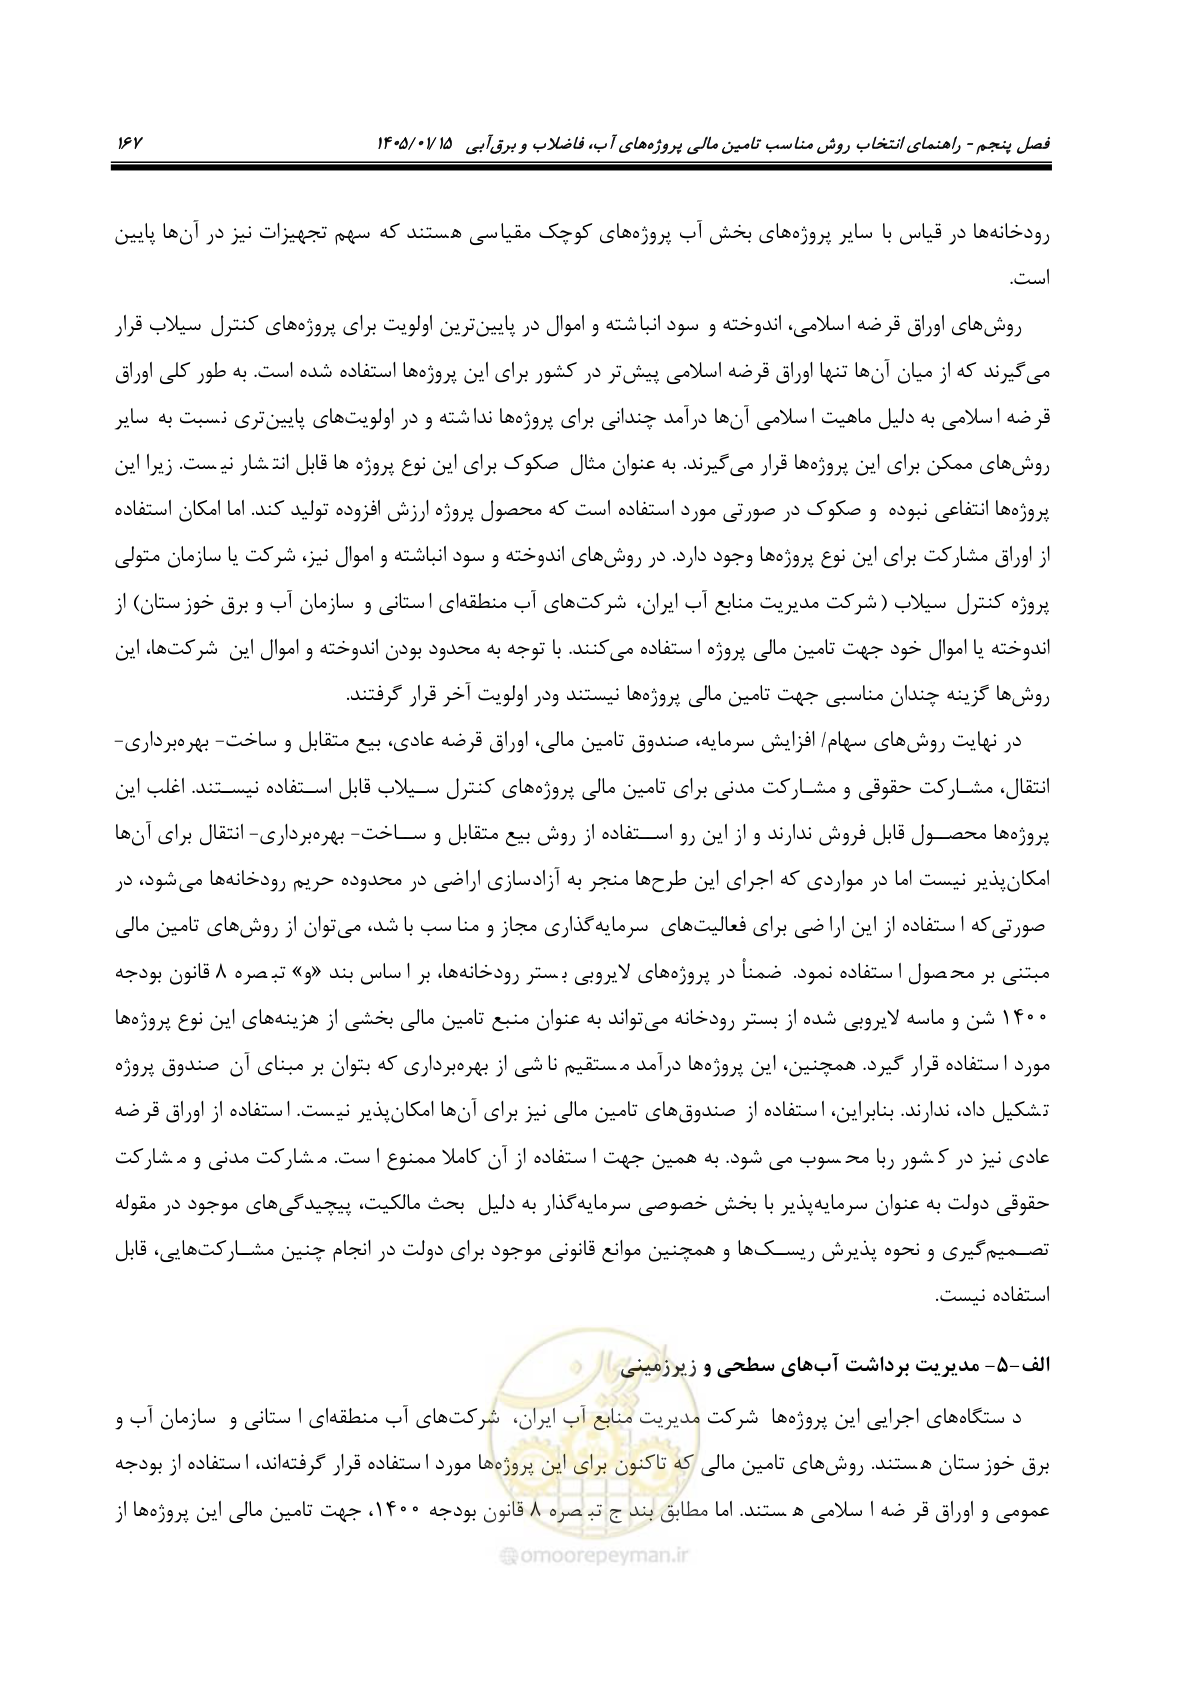 فصل پنجم - راهنمای انتخاب روش مناسب تامین مالی پروژه‌های آب، فاضلاب و برق‌آبی ۱۴۰۵/۰۱/۱۵ ۱۶۷
رودخانه‌ها در قیاس با سایر پروژه‌های بخش آب پروژه‌های کوچک مقیاسی هستند که سهم تجهیزات نیز در آن‌ها پایین
است.
روش‌های اوراق قرضه اسلامی، اندوخته و سود انباشته و اموال در پایین‌ترین اولویت برای پروژه‌های کنترل سیلاب قرار
می‌گیرند که از میان آن‌ها تنها اوراق قرضه اسلامی پیش‌تر در کشور برای این پروژه‌ها استفاده شده است. به طور کلی اوراق
قرضه اسلامی به دلیل ماهیت اسلامی آن‌ها درآمد چندانی برای پروژه‌ها نداشته و در اولویت‌های پایین‌تری نسبت به سایر
روش‌های ممکن برای این پروژه‌ها قرار می‌گیرند. به عنوان مثال صکوک برای این نوع پروژه ها قابل انتشار نیست. زیرا این
پروژه‌ها انتفاعی نبوده و صکوک در صورتی مورد استفاده است که محصول پروژه ارزش افزوده تولید کند. اما امکان استفاده
از اوراق مشارکت برای این نوع پروژه‌ها وجود دارد. در روش‌های اندوخته و سود انباشته و اموال نیز، شرکت یا سازمان متولی
پروژه کنترل سیلاب (شرکت مدیریت منابع آب ایران، شرکت‌های آب منطقه‌ای استانی و سازمان آب و برق خوزستان) از
اندوخته یا اموال خود جهت تامین مالی پروژه استفاده می‌کنند. با توجه به محدود بودن اندوخته و اموال این شرکت‌ها، این
روش‌ها گزینه چندان مناسبی جهت تامین مالی پروژه‌ها نیستند ودر اولویت آخر قرار گرفتند.
در نهایت روش‌های سهام/ افزایش سرمایه، صندوق تامین مالی، اوراق قرضه عادی، بیع متقابل و ساخت- بهره‌برداری-
انتقال، مشارکت حقوقی و مشارکت مدنی برای تامین مالی پروژه‌های کنترل سیلاب قابل استفاده نیستند. اغلب این
پروژه‌ها محصول قابل فروش ندارند و از این رو استفاده از روش بیع متقابل و ساخت- بهره‌برداری- انتقال برای آن‌ها
امکان‌پذیر نیست اما در مواردی که اجرای این طرح‌ها منجر به آزادسازی اراضی در محدوده حریم رودخانه‌ها می‌شود، در
صورتی‌که استفاده از این اراضی برای فعالیت‌های سرمایه‌گذاری مجاز و مناسب باشد، می‌توان از روش‌های تامین مالی
مبتنی بر محصول استفاده نمود. ضمناً در پروژه‌های لایروبی بستر رودخانه‌ها، بر اساس بند «و» تبصره ۸ قانون بودجه
۱۴۰۰ شن و ماسه لایروبی شده از بستر رودخانه می‌تواند به عنوان منبع تامین مالی بخشی از هزینه‌های این نوع پروژه‌ها
مورد استفاده قرار گیرد. همچنین، این پروژه‌ها درآمد مستقیم ناشی از بهره‌برداری که بتوان بر مبنای آن صندوق پروژه
تشکیل داد، ندارند. بنابراین، استفاده از صندوق‌های تامین مالی نیز برای آن‌ها امکان‌پذیر نیست. استفاده از اوراق قرضه
عادی نیز در کشور ربا محسوب می شود. به همین جهت استفاده از آن کاملا ممنوع است. مشارکت مدنی و مشارکت
حقوقی دولت به عنوان سرمایه‌پذیر با بخش خصوصی سرمایه‌گذار به دلیل بحث مالکیت، پیچیدگی‌های موجود در مقوله
تصمیم‌گیری و نحوه پذیرش ریسک‌ها و همچنین موانع قانونی موجود برای دولت در انجام چنین مشارکت‌هایی، قابل
استفاده نیست.
الف-۵- مدیریت برداشت آب‌های سطحی و زیرزمینی
دستگاه‌های اجرایی این پروژه‌ها شرکت مدیریت منابع آب ایران، شرکت‌های آب منطقه‌ای استانی و سازمان آب و
برق خوزستان هستند. روش‌های تامین مالی که تاکنون برای این پروژه‌ها مورد استفاده قرار گرفته‌اند، استفاده از بودجه
عمومی و اوراق قرضه اسلامی هستند. اما مطابق بند ج تبصره ۸ قانون بودجه ۱۴۰۰، جهت تامین مالی این پروژه‌ها از
امور پیمان
@omoorepeyman.ir